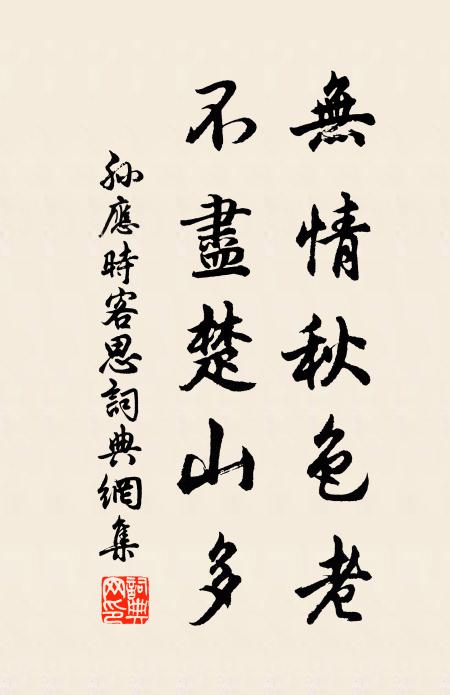 無情秋色老
不盡楚山多
孫應時客思詞典網集
詞典網印